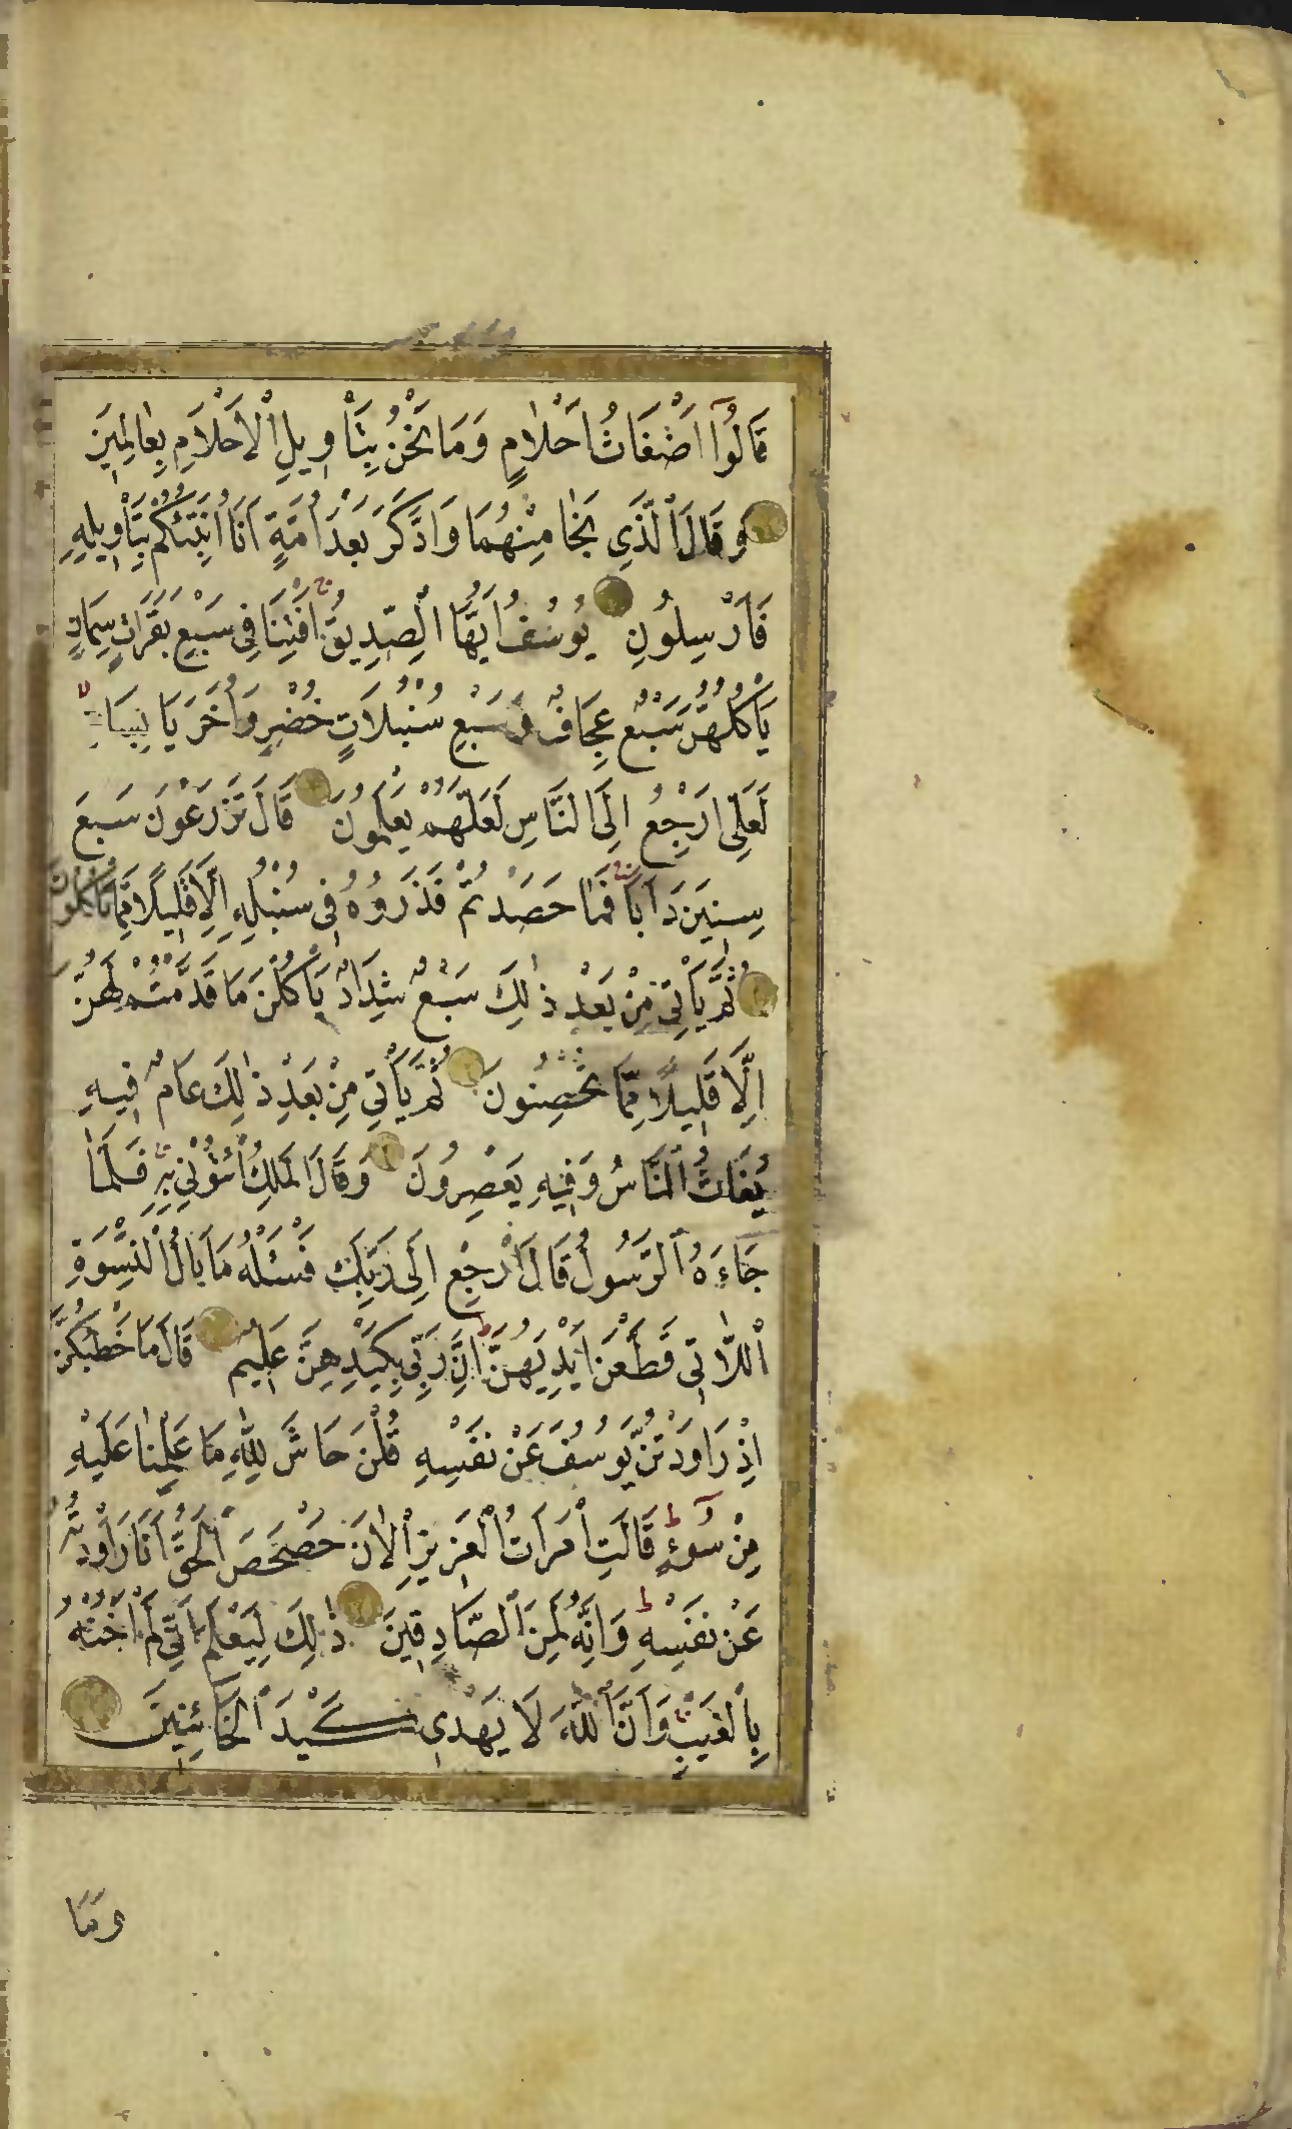 قَالُوٓا اَضْغَاثُ اَحْلَامٍ وَمَا نَحْنُ بِتَأْوِيلِ الْاَحْلَامِ بِعَالِمِينَ
وَقَالَ الَّذِي نَجَا مِنْهُمَا وَادَّكَرَ بَعْدَ اُمَّةٍ اَنَا اُنَبِّئُكُمْ بِتَأْوِيلِهِ
فَاَرْسِلُونِ يُوسُفُ اَيُّهَا الصِّدِّيقُ اَفْتِنَا فِي سَبْعِ بَقَرَاتٍ سِمَانٍ
يَأْكُلُهُنَّ سَبْعٌ عِجَافٌ وَسَبْعِ سُنْبُلَاتٍ خُضْرٍ وَاُخَرَ يَابِسَاتٍ
لَعَلِّي اَرْجِعُ اِلَى النَّاسِ لَعَلَّهُمْ يَعْلَمُونَ قَالَ تَزْرَعُونَ سَبْعَ
سِنِينَ دَاَبًا فَمَا حَصَدْتُمْ فَذَرُوهُ فِي سُنْبُلِهِ اِلَّا قَلِيلًا مِمَّا تَأْكُلُونَ
ثُمَّ يَأْتِي مِنْ بَعْدِ ذٰلِكَ سَبْعٌ شِدَادٌ يَأْكُلْنَ مَا قَدَّمْتُمْ لَهُنَّ
اِلَّا قَلِيلًا مِمَّا تُحْصِنُونَ ثُمَّ يَأْتِي مِنْ بَعْدِ ذٰلِكَ عَامٌ فِيهِ
يُغَاثُ النَّاسُ وَفِيهِ يَعْصِرُونَ وَقَالَ الْمَلِكُ ائْتُونِي بِهِ فَلَمَّا
جَاءَهُ الرَّسُولُ قَالَ ارْجِعْ اِلَى رَبِّكَ فَسْئَلْهُ مَا بَالُ النِّسْوَةِ
اللَّاتِي قَطَّعْنَ اَيْدِيَهُنَّ اِنَّ رَبِّي بِكَيْدِهِنَّ عَلِيمٌ قَالَ مَا خَطْبُكُنَّ
اِذْ رَاوَدْتُنَّ يُوسُفَ عَنْ نَفْسِهِ قُلْنَ حَاشَ لِلّٰهِ مَا عَلِمْنَا عَلَيْهِ
مِنْ سُوٓءٍ قَالَتِ امْرَاَتُ الْعَزِيزِ الْاٰنَ حَصْحَصَ الْحَقُّ اَنَا رَاوَدْتُهُ
عَنْ نَفْسِهِ وَاِنَّهُ لَمِنَ الصَّادِقِينَ ذٰلِكَ لِيَعْلَمَ اَنِّي لَمْ اَخُنْهُ
بِالْغَيْبِ وَاَنَّ اللّٰهَ لَا يَهْدِي كَيْدَ الْخَائِنِينَ
وَمَا